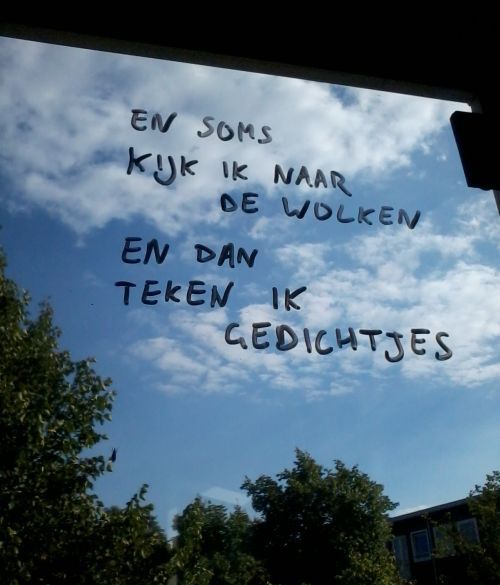 EN SOMS
KIJK IK NAAR
DE WOLKEN
EN DAN
TEKEN IK
GEDICHTJES